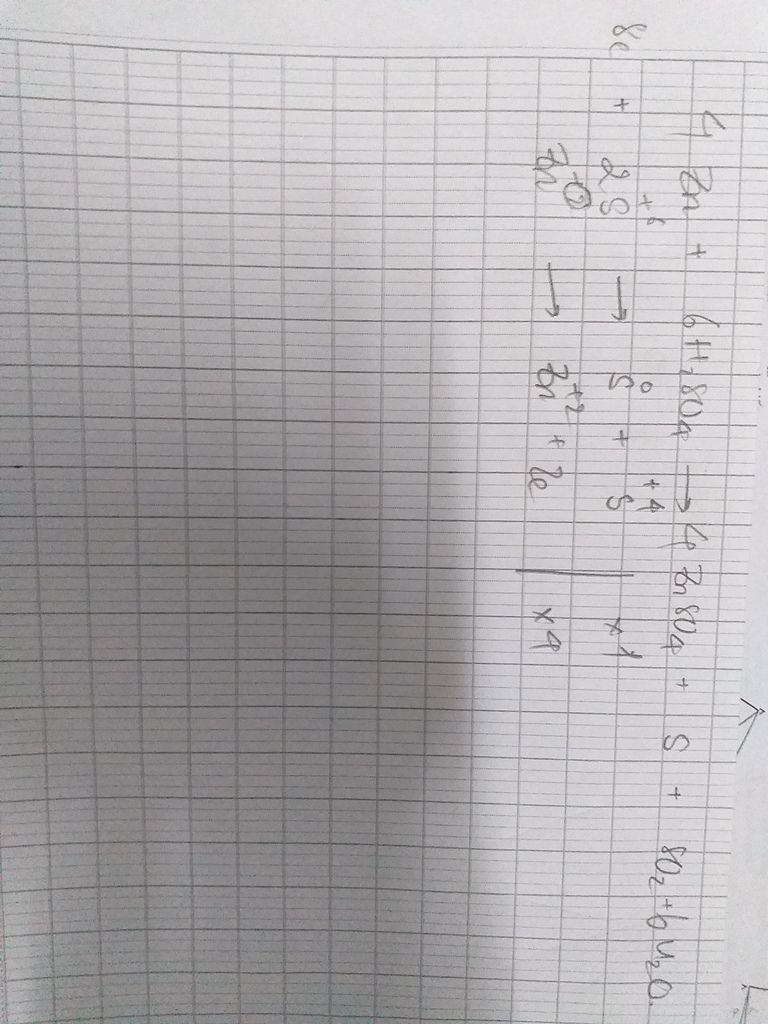 4 Zn + 6H₂SO₄ → 4 ZnSO₄ + S + SO₂ + 6 H₂O
8e + 2S⁺⁶ → S⁰ + S⁺⁴ | x1
Zn → Zn⁺² + 2e | x4